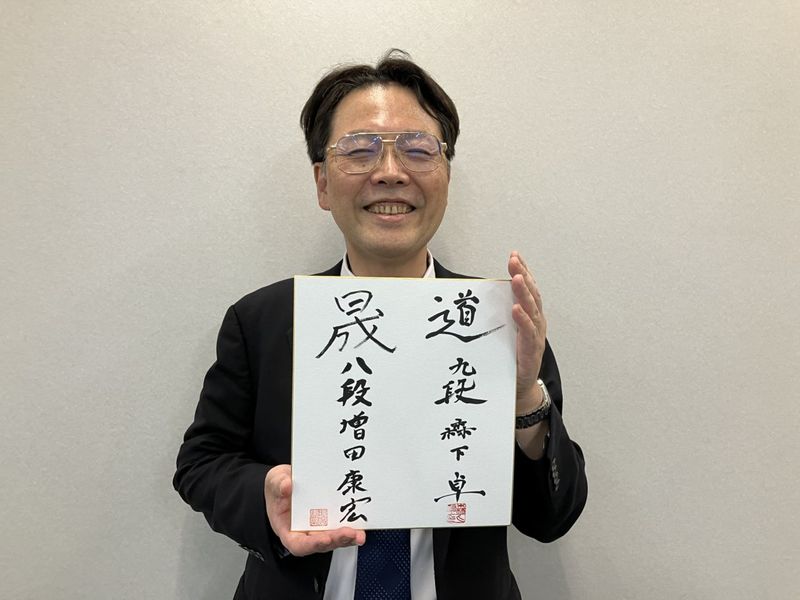 道 九段 森下卓
晟 八段 増田康宏